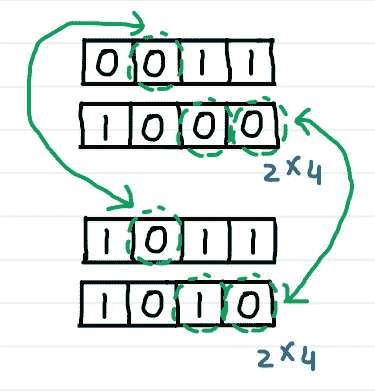 0 0 1 1
1 0 0 0
2 × 4
1 0 1 1
1 0 1 0
2 × 4